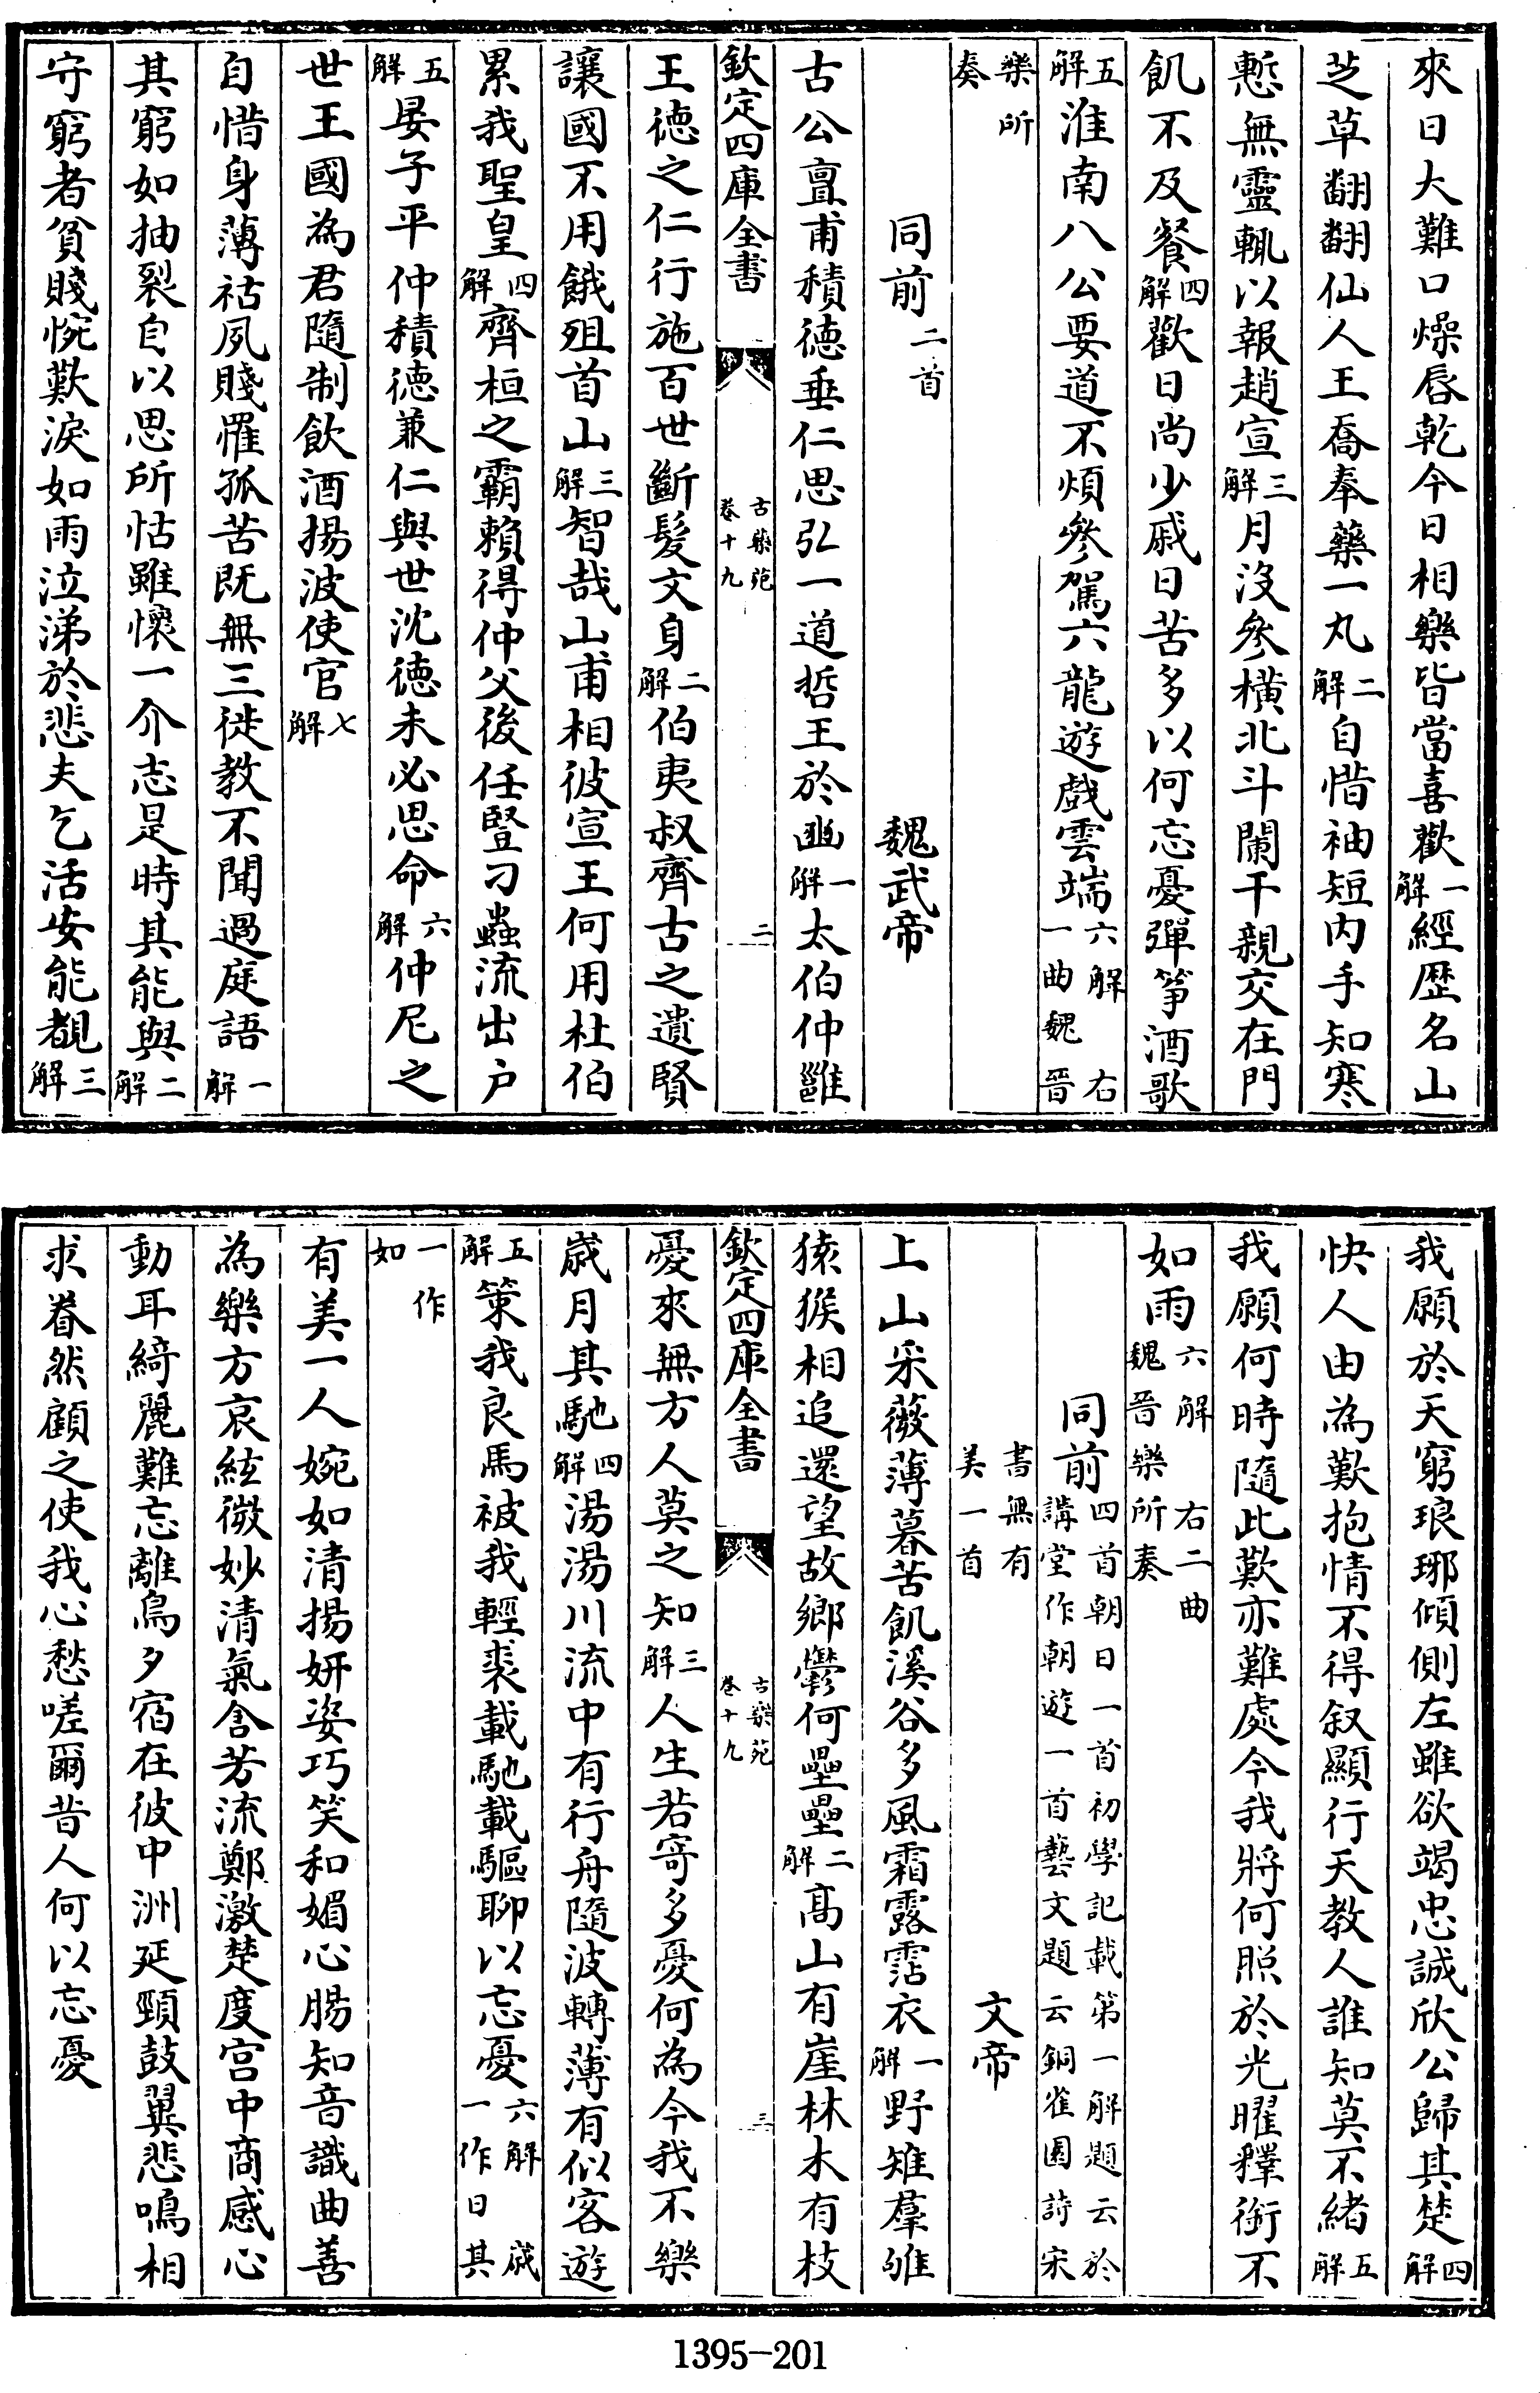 來日大難口燥唇乾今日相樂皆當喜歡一解經歴名山
芝草翻翻仙人王喬奉藥一丸二解自惜袖短内手知寒
慙無靈輒以報趙宣三解月沒參橫北斗闌干親交在門
飢不及餐四解歡日尚少戚日苦多以何忘憂彈筝酒歌
五解淮南八公要道不煩參駕六龍遊戲雲端六解右一曲魏晉
樂所奏
同前二首 魏武帝
古公亶甫積徳垂仁思弘一道哲王於豳一解太伯仲雍
欽定四庫全書 古樂苑卷十九 二
王徳之仁行施百世斷髮文身二解伯夷叔齊古之遺賢
讓國不用餓殂首山三解智哉山甫相彼宣王何用杜伯
累我聖皇四解齊桓之霸賴得仲父後任豎刁蟲流出户
五解晏子平仲積徳兼仁與世沈徳未必思命六解仲尼之
世王國為君隨制飲酒揚波使官七解
自惜身薄祜夙賤罹孤苦既無三徙教不聞過庭語一解
其窮如抽裂自以思所怙雖懷一介志是時其能與二解
守窮者貧賤惋歎淚如雨泣涕於悲夫乞活安能覩三解
我願於天窮琅琊傾側左雖欲竭忠誠欣公歸其楚四解
快人由為歎抱情不得叙顯行天教人誰知莫不緒五解
我願何時隨此歎亦難處今我將何照於光曜釋銜不
如雨六解右二曲魏晉樂所奏
同前四首朝日一首初學記載第一解題云於講堂作朝遊一首藝文題云銅雀園詩宋
書無有美一首 文帝
上山采薇薄暮苦飢溪谷多風霜露霑衣一解野雉羣雊
猿猴相追還望故鄉鬱何壘壘二解高山有崖林木有枝
欽定四庫全書 古樂苑卷十九 三
憂來無方人莫之知三解人生若寄多憂何為今我不樂
歳月其馳四解湯湯川流中有行舟隨波轉薄有似客遊
五解策我良馬被我輕裘載馳載驅聊以忘憂六解歳一作日其
一作如
有美一人婉如清揚妍姿巧笑和媚心腸知音識曲善
為樂方哀絃微妙清氣含芳流鄭激楚度宫中商感心
動耳綺麗難忘離鳥夕宿在彼中洲延頸鼓翼悲鳴相
求眷然顧之使我心愁嗟爾昔人何以忘憂
1395-201